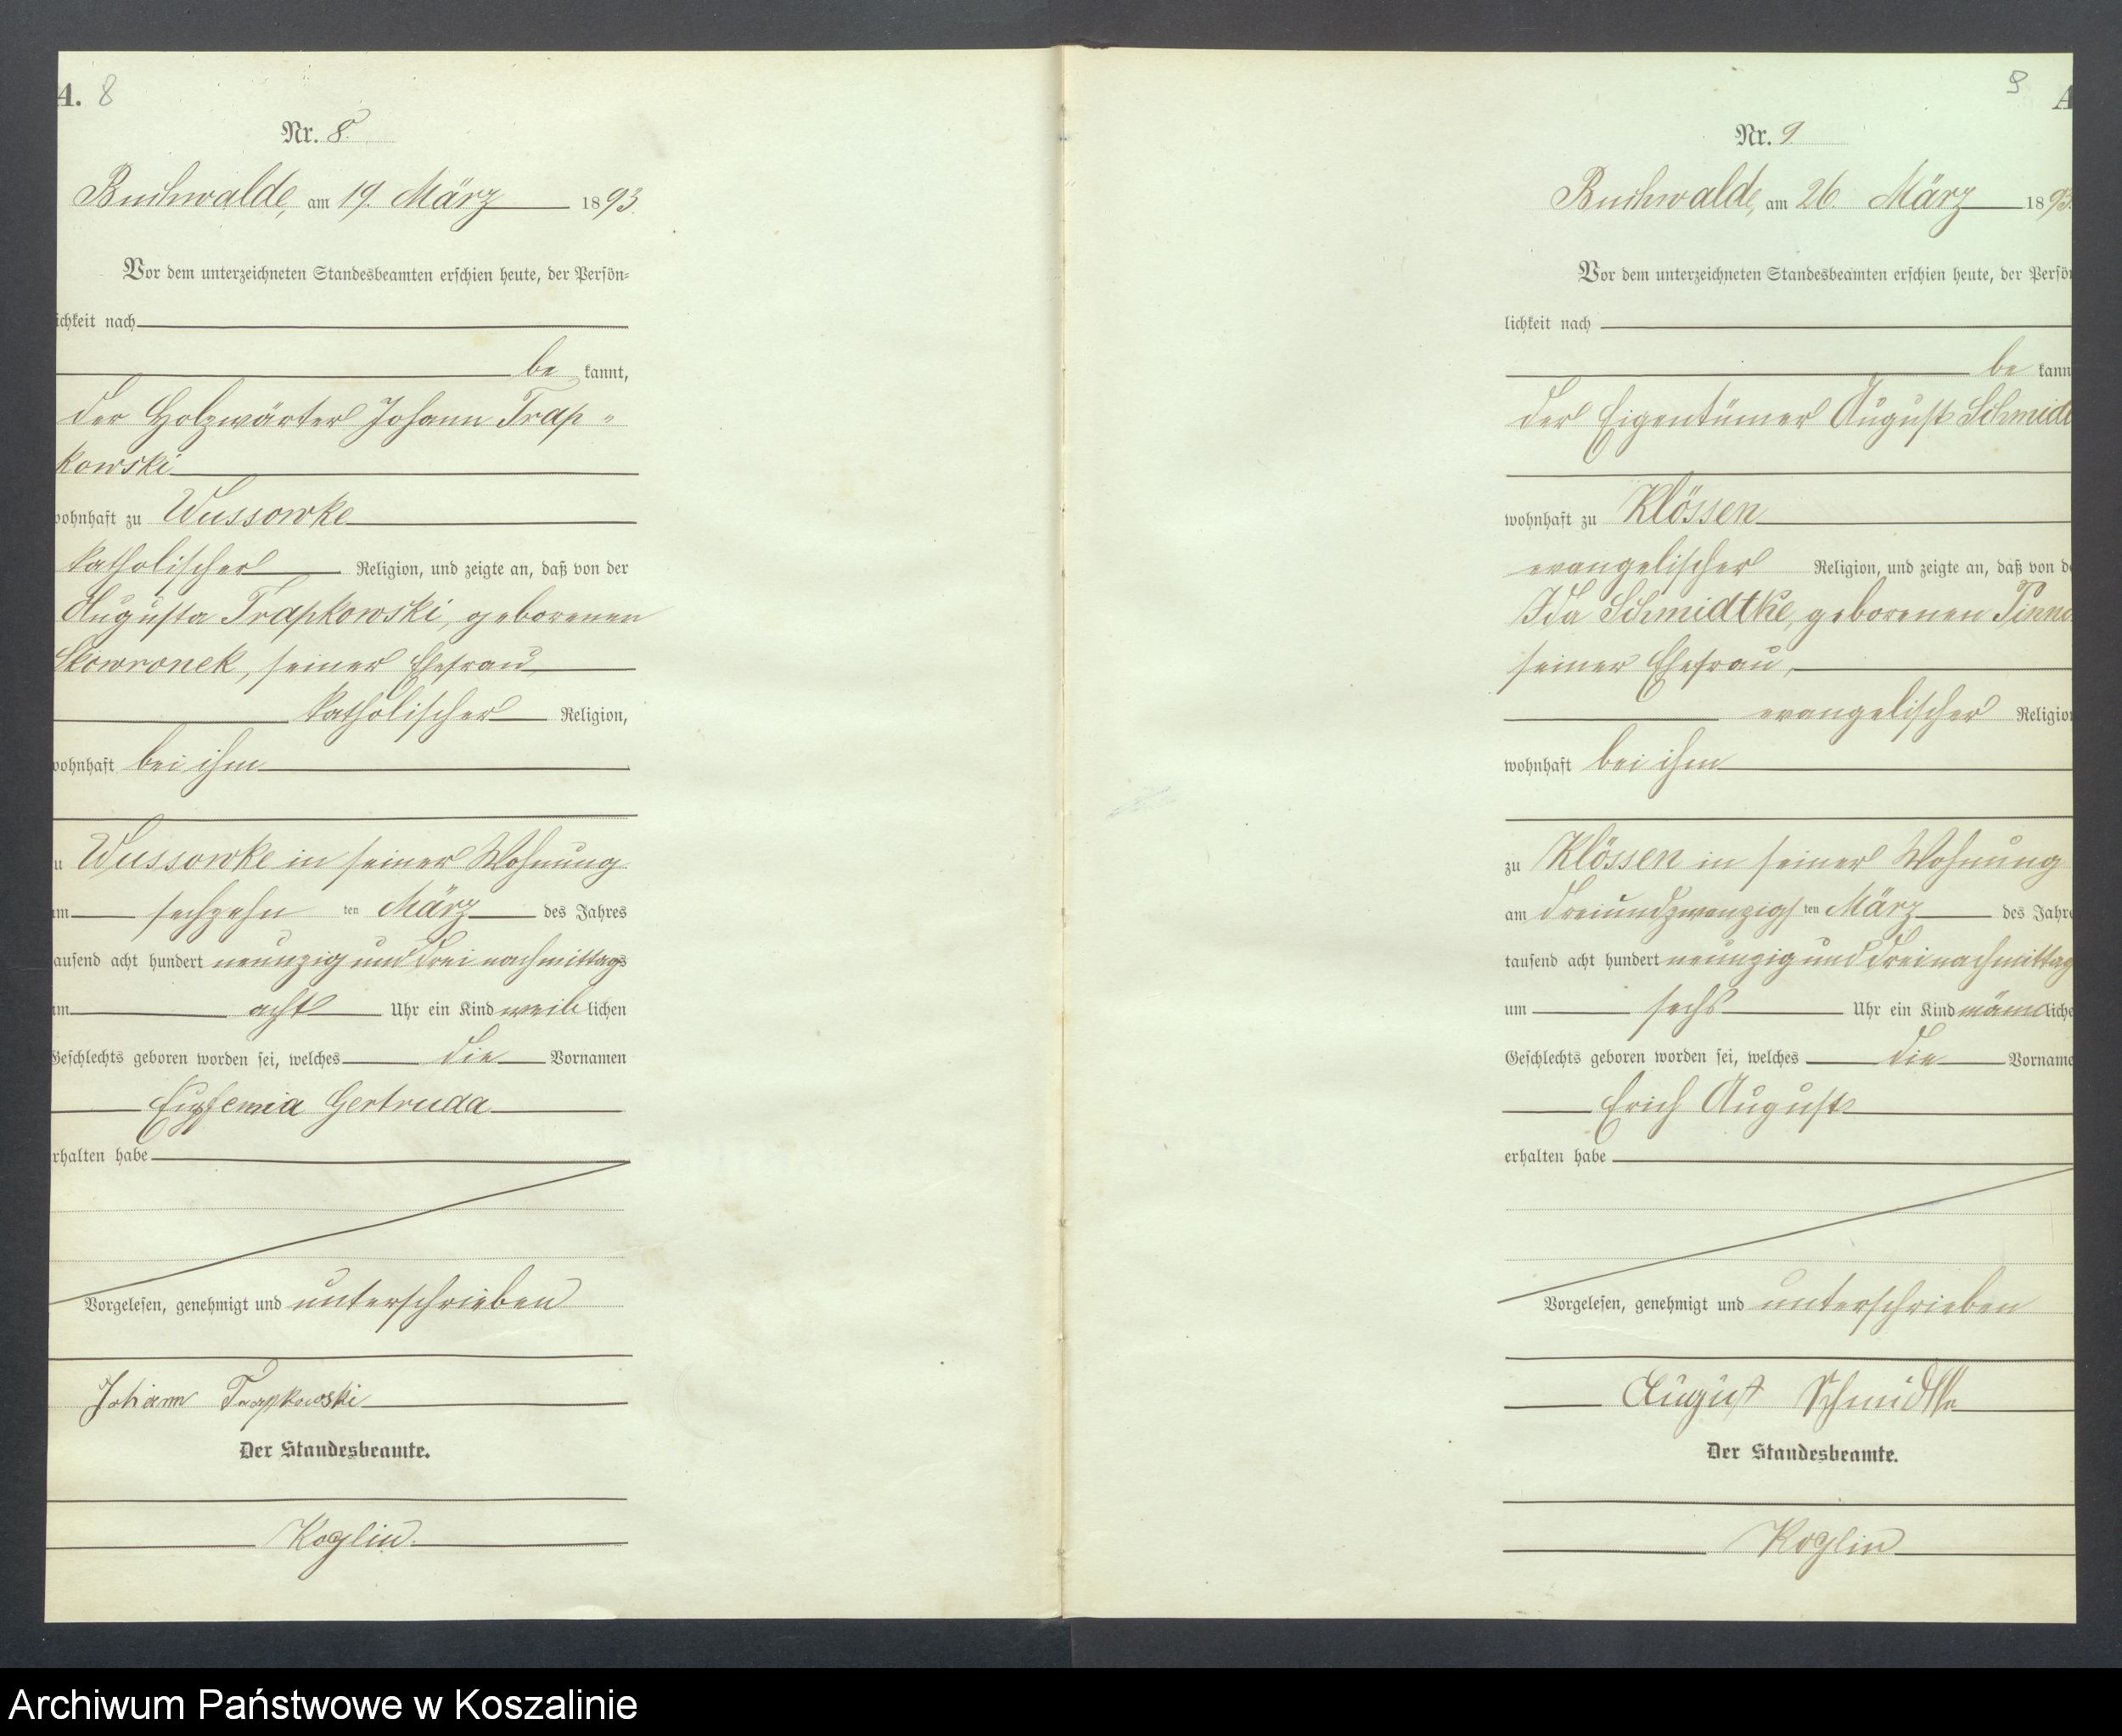 A. 8
Nr. 8.
Buchwalde, am 19. März 1893.
Vor dem unterzeichneten Standesbeamten erschien heute, der Persön-
ichkeit nach
be kannt,
der Holzwärter Johann Trap-
kowski
wohnhaft zu Wussowke
katholischer Religion, und zeigte an, daß von der
Augusta Trapkowski, geborenen
Skowronek, seiner Ehefrau,
katholischer Religion,
wohnhaft bei ihm
u Wussowke in seiner Wohnung
am sechzehn ten März des Jahres
tausend acht hundert neunzig und drei nachmittags
um acht Uhr ein Kind weib lichen
Geschlechts geboren worden sei, welches die Vornamen
Eupfemia Gertruda
erhalten habe
Vorgelesen, genehmigt und unterschrieben
Johann Trapkowski
Der Standesbeamte.
Koglin.
9 A
Nr. 9
Buchwalde, am 26. März 1893.
Vor dem unterzeichneten Standesbeamten erschien heute, der Persön
lichkeit nach
be kann
der Eigentümer August Schmidt
wohnhaft zu Klössen
evangelischer Religion, und zeigte an, daß von de
Ida Schmidtke, geborenen Pinno
seiner Ehefrau,
evangelischer Religion
wohnhaft bei ihm
zu Klössen in seiner Wohnung
am dreiundzwanzigs ten März des Jahre
tausend acht hundert neunzig und drei nachmittag
um sechs Uhr ein Kind männ liche
Geschlechts geboren worden sei, welches die Vorname
Erich August
erhalten habe
Vorgelesen, genehmigt und unterschrieben
August Schmidtke
Der Standesbeamte.
Koglin
Archiwum Państwowe w Koszalinie